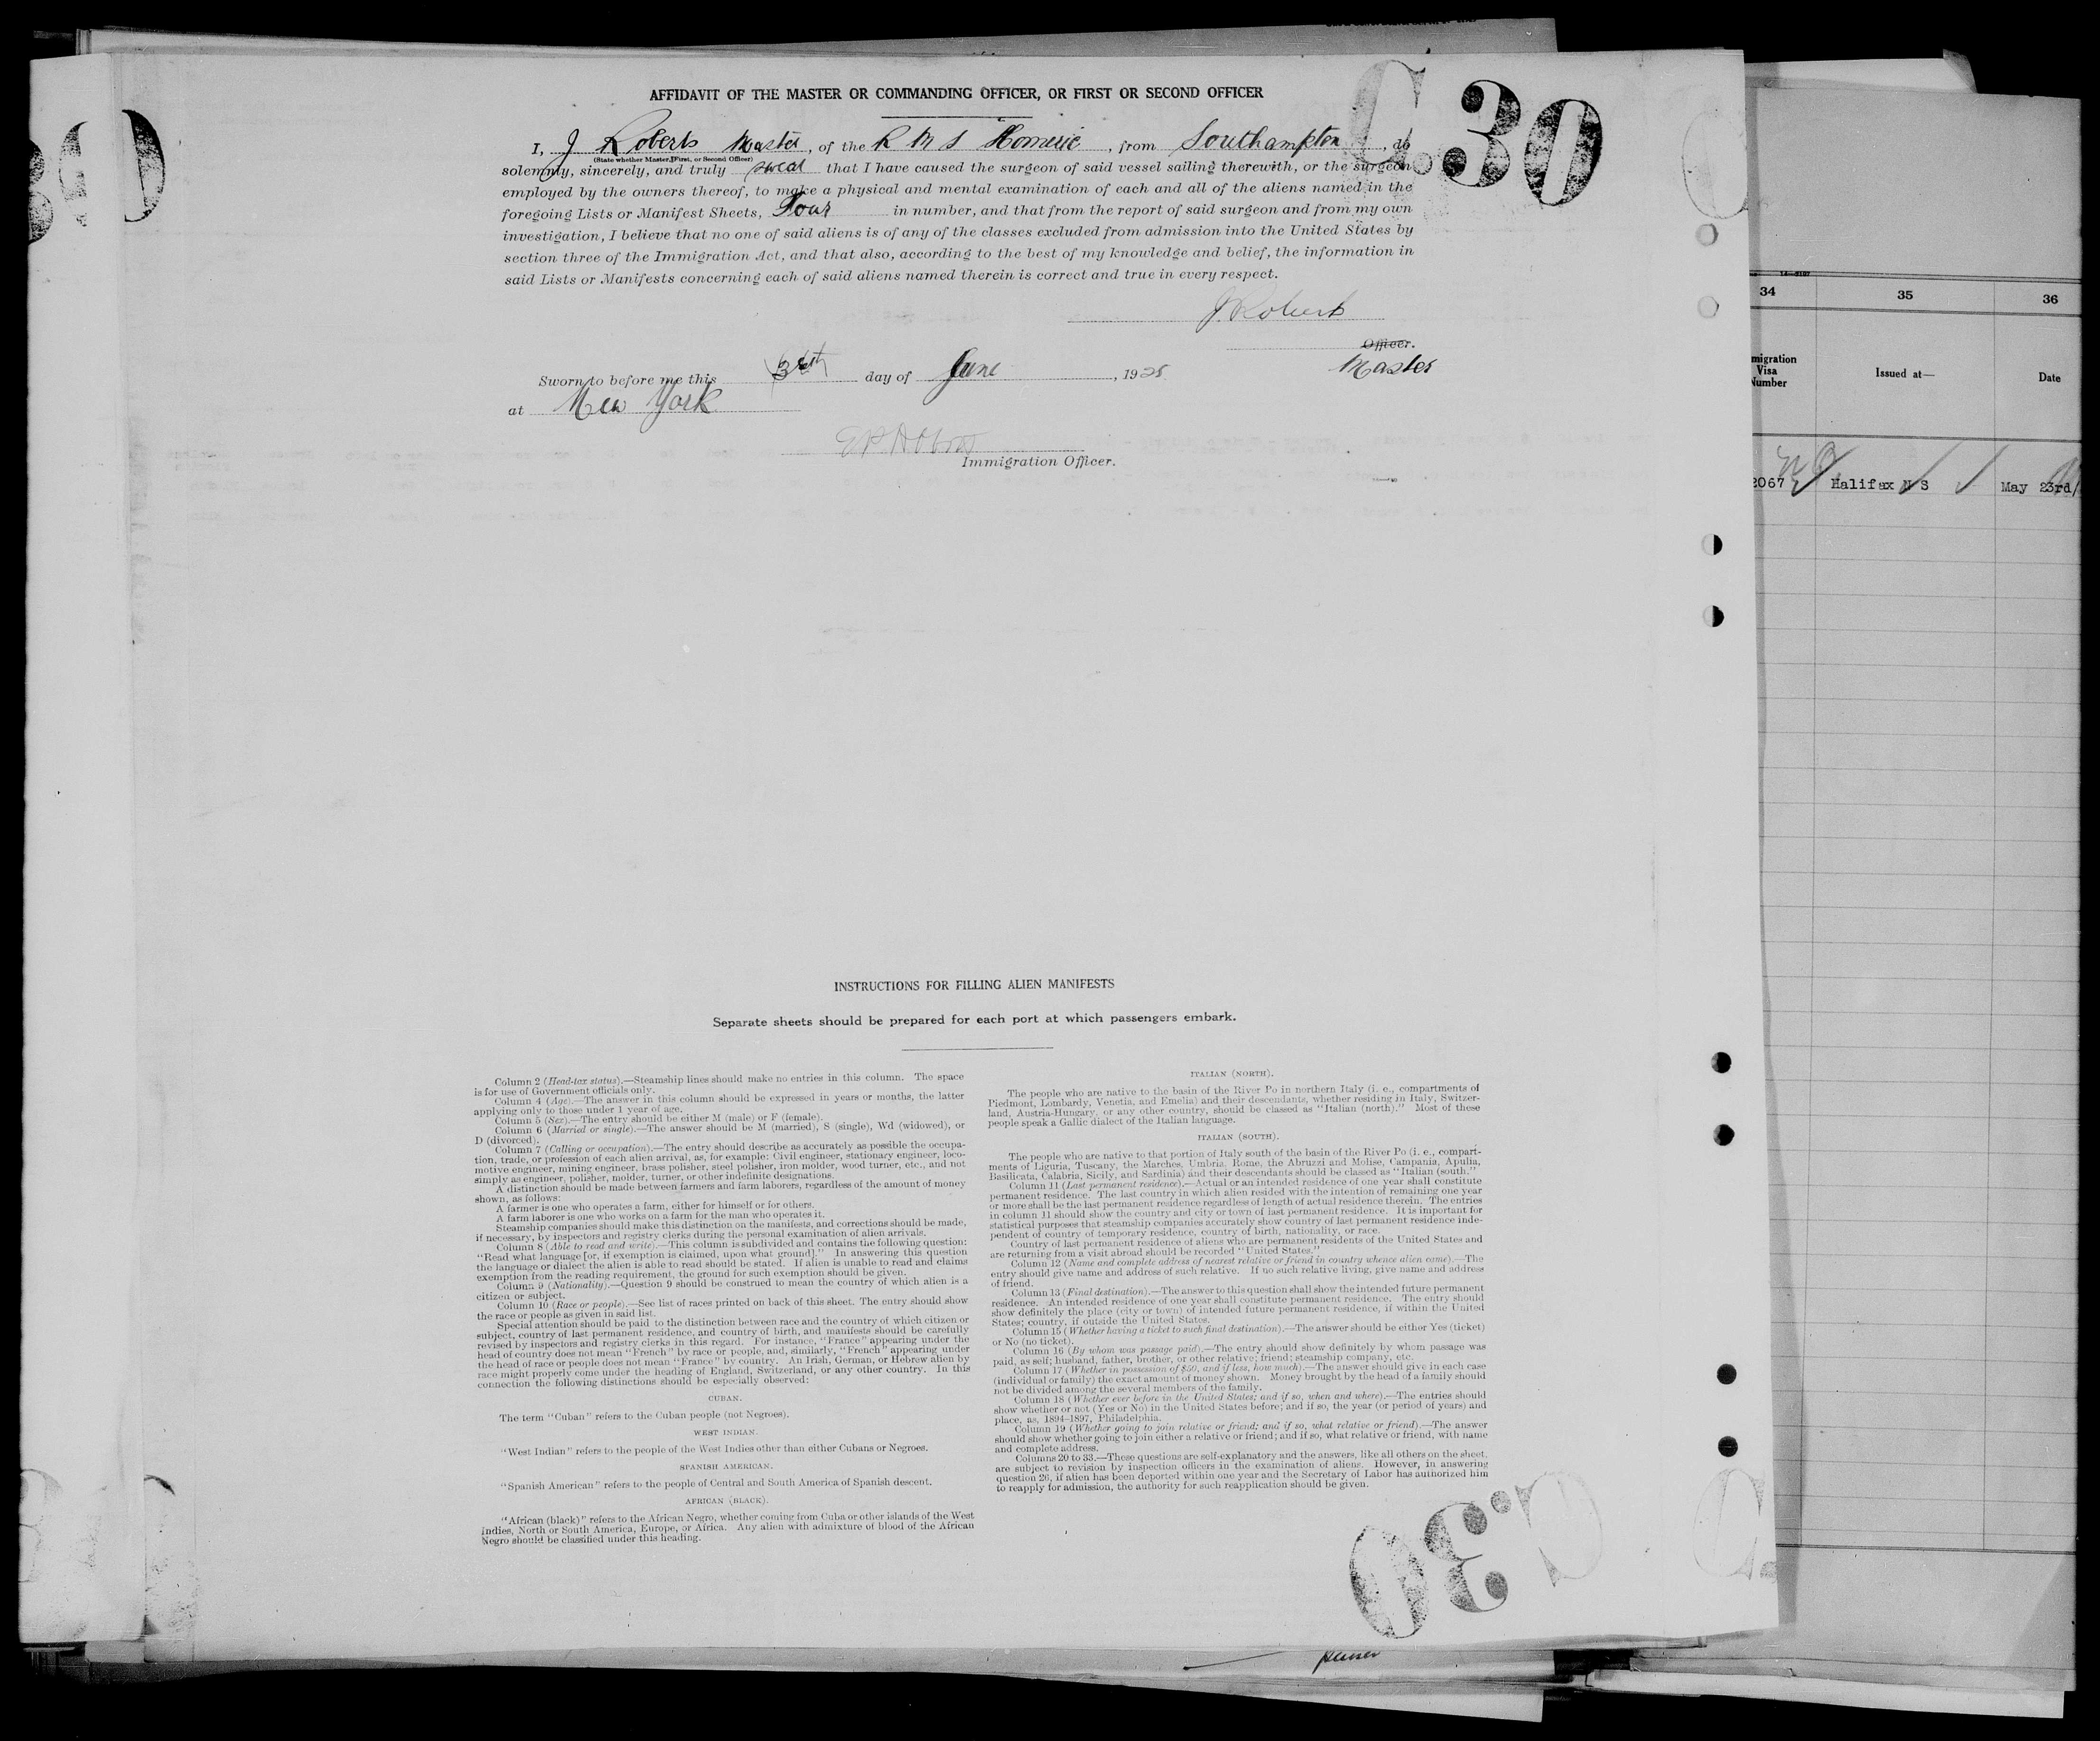 AFFIDAVIT OF THE MASTER OR COMMANDING OFFICER, OR FIRST OR SECOND OFFICER
C.30
I, J Roberts Master, of the R M S Homeric, from Southampton, do
(State whether Master, First, or Second Officer)
solemnly, sincerely, and truly swear that I have caused the surgeon of said vessel sailing therewith, or the surgeon
employed by the owners thereof, to make a physical and mental examination of each and all of the aliens named in the
foregoing Lists or Manifest Sheets, Four in number, and that from the report of said surgeon and from my own
investigation, I believe that no one of said aliens is of any of the classes excluded from admission into the United States by
section three of the Immigration Act, and that also, according to the best of my knowledge and belief, the information in
said Lists or Manifests concerning each of said aliens named therein is correct and true in every respect.
J. Roberts
Officer.
Master
Sworn to before me this day of June, 1925
at New York
Immigration Officer.
34 35 36
migration
Visa
Number
Issued at—
Date
2067 Halifax N S May 23rd/
INSTRUCTIONS FOR FILLING ALIEN MANIFESTS
Separate sheets should be prepared for each port at which passengers embark.
Column 2 (Head-tax status).—Steamship lines should make no entries in this column. The space
is for use of Government officials only.
Column 4 (Age).—The answer in this column should be expressed in years or months, the latter
applying only to those under 1 year of age.
Column 5 (Sex).—The entry should be either M (male) or F (female).
Column 6 (Married or single).—The answer should be M (married), S (single), Wd (widowed), or
D (divorced).
Column 7 (Calling or occupation).—The entry should describe as accurately as possible the occupa-
tion, trade, or profession of each alien arrival, as, for example: Civil engineer, stationary engineer, loco-
motive engineer, mining engineer, brass polisher, steel polisher, iron molder, wood turner, etc., and not
simply as engineer, polisher, molder, turner, or other indefinite designations.
A distinction should be made between farmers and farm laborers, regardless of the amount of money
shown, as follows:
A farmer is one who operates a farm, either for himself or for others.
A farm laborer is one who works on a farm for the man who operates it.
Steamship companies should make this distinction on the manifests, and corrections should be made,
if necessary, by inspectors and registry clerks during the personal examination of alien arrivals.
Column 8 (Able to read and write).—This column is subdivided and contains the following question:
"Read what language [or, if exemption is claimed, upon what ground]." In answering this question
the language or dialect the alien is able to read should be stated. If alien is unable to read and claims
exemption from the reading requirement, the ground for such exemption should be given.
Column 9 (Nationality).—Question 9 should be construed to mean the country of which alien is a
citizen or subject.
Column 10 (Race or people).—See list of races printed on back of this sheet. The entry should show
the race or people as given in said list.
Special attention should be paid to the distinction between race and the country of which citizen or
subject, country of last permanent residence, and country of birth, and manifests should be carefully
revised by inspectors and registry clerks in this regard. For instance, "France" appearing under the
head of country does not mean "French" by race or people, and, similarly, "French" appearing under
the head of race or people does not mean "France" by country. An Irish, German, or Hebrew alien by
race might properly come under the heading of England, Switzerland, or any other country. In this
connection the following distinctions should be especially observed:
CUBAN.
The term "Cuban" refers to the Cuban people (not Negroes).
WEST INDIAN.
"West Indian" refers to the people of the West Indies other than either Cubans or Negroes.
SPANISH AMERICAN.
"Spanish American" refers to the people of Central and South America of Spanish descent.
AFRICAN (BLACK).
"African (black)" refers to the African Negro, whether coming from Cuba or other islands of the West
Indies, North or South America, Europe, or Africa. Any alien with admixture of blood of the African
Negro should be classified under this heading.
ITALIAN (NORTH).
The people who are native to the basin of the River Po in northern Italy (i. e., compartments of
Piedmont, Lombardy, Venetia, and Emelia) and their descendants, whether residing in Italy, Switzer-
land, Austria-Hungary, or any other country, should be classed as "Italian (north)." Most of these
people speak a Gallic dialect of the Italian language.
ITALIAN (SOUTH).
The people who are native to that portion of Italy south of the basin of the River Po (i. e., compart-
ments of Liguria, Tuscany, the Marches, Umbria, Rome, the Abruzzi and Molise, Campania, Apulia,
Basilicata, Calabria, Sicily, and Sardinia) and their descendants should be classed as "Italian (south."
Column 11 (Last permanent residence).—Actual or an intended residence of one year shall constitute
permanent residence. The last country in which alien resided with the intention of remaining one year
or more shall be the last permanent residence regardless of length of actual residence therein. The entries
in column 11 should show the country and city or town of last permanent residence. It is important for
statistical purposes that steamship companies accurately show country of last permanent residence inde-
pendent of country of temporary residence, country of birth, nationality, or race.
Country of last permanent residence of aliens who are permanent residents of the United States and
are returning from a visit abroad should be recorded "United States."
Column 12 (Name and complete address of nearest relative or friend in country whence alien came).—The
entry should give name and address of such relative. If no such relative living, give name and address
of friend.
Column 13 (Final destination).—The answer to this question shall show the intended future permanent
residence. An intended residence of one year shall constitute permanent residence. The entry should
show definitely the place (city or town) of intended future permanent residence, if within the United
States; country, if outside the United States.
Column 15 (Whether having a ticket to such final destination).—The answer should be either Yes (ticket)
or No (no ticket).
Column 16 (By whom was passage paid).—The entry should show definitely by whom passage was
paid, as self; husband, father, brother, or other relative; friend; steamship company, etc.
Column 17 (Whether in possession of $50, and if less, how much).—The answer should give in each case
(individual or family) the exact amount of money shown. Money brought by the head of a family should
not be divided among the several members of the family.
Column 18 (Whether ever before in the United States; and if so, when and where).—The entries should
show whether or not (Yes or No) in the United States before; and if so, the year (or period of years) and
place, as, 1894–1897, Philadelphia.
Column 19 (Whether going to join relative or friend; and if so, what relative or friend).—The answer
should show whether going to join either a relative or friend; and if so, what relative or friend, with name
and complete address.
Columns 20 to 33.—These questions are self-explanatory and the answers, like all others on the sheet,
are subject to revision by inspection officers in the examination of aliens. However, in answering
question 26, if alien has been deported within one year and the Secretary of Labor has authorized him
to reapply for admission, the authority for such reapplication should be given.
C.30